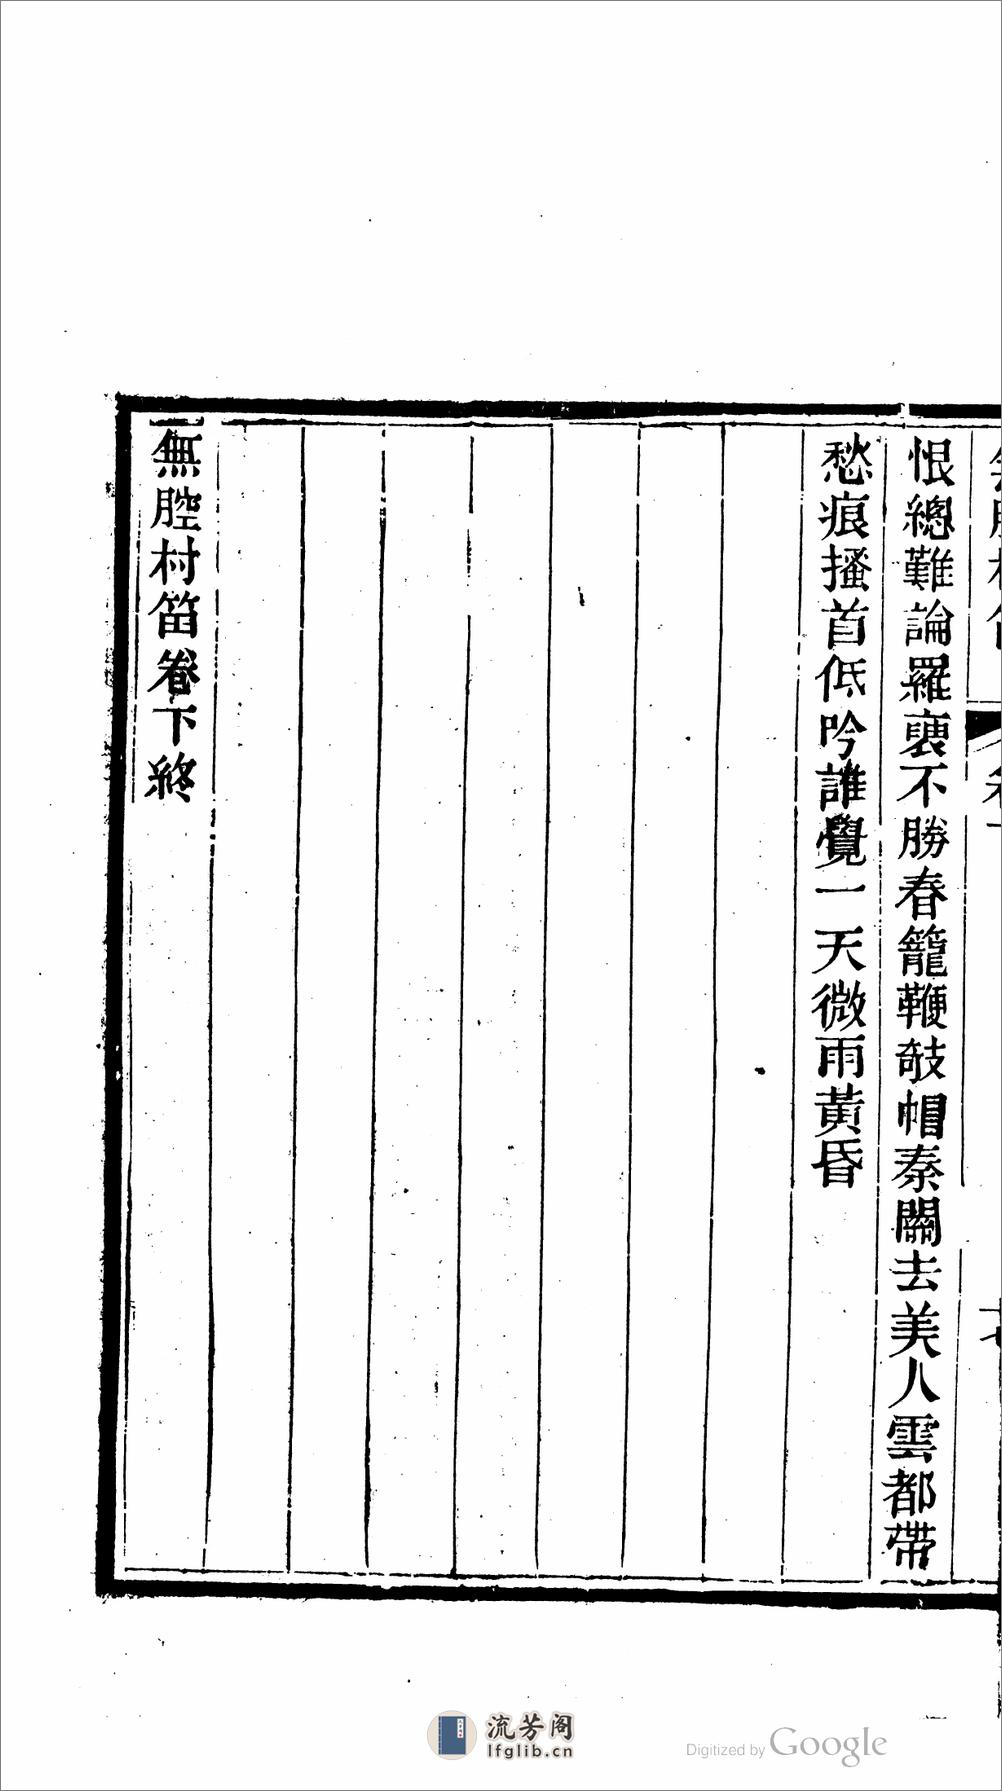 恨總難論羅裏不勝春籠鞭攲帽秦關去美人雲都帶
愁痕搔首低吟誰覺一天微雨黃昏
無腔村笛卷下終
流芳阁
lfglib.cn
Digitized by Google